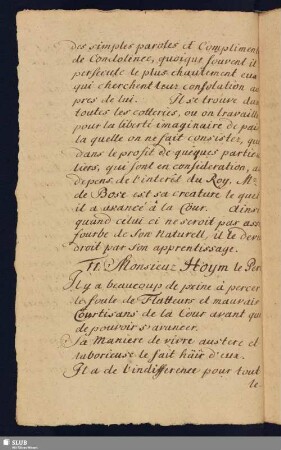 des simples paroles et Compliment
de Condolence, quoique souvent il
persecute le plus chaudement ceux
qui cherchent leur consolation au
pres de lui. Il se trouve dan
toutes les cotteries, ou on travaille
pour la liberté imaginaire de
la quelle on ne fait consister, que
dans le profit de quiques particu
liers, qui sont en consideration, a
depens de l'interêt du Roy. Mr.
de Bose est sa creature le quel
il a avancé à la Cour. Ainsi
quand celui ci ne seroit pas as
fourbe de son Naturell, il le dev
droit par son apprentissage.
11. Monsieur Hoym le Per
Il y a beaucoup de peine à percer
la foule de Flatteurs et mauvais
Courtisans de la Cour avant que
de pouvoir s'avancer.
Sa Maniere de vivre austere et
laborieuse le fait haïr d'eux.
Il a de l'indifference pour tout
le
SLUB